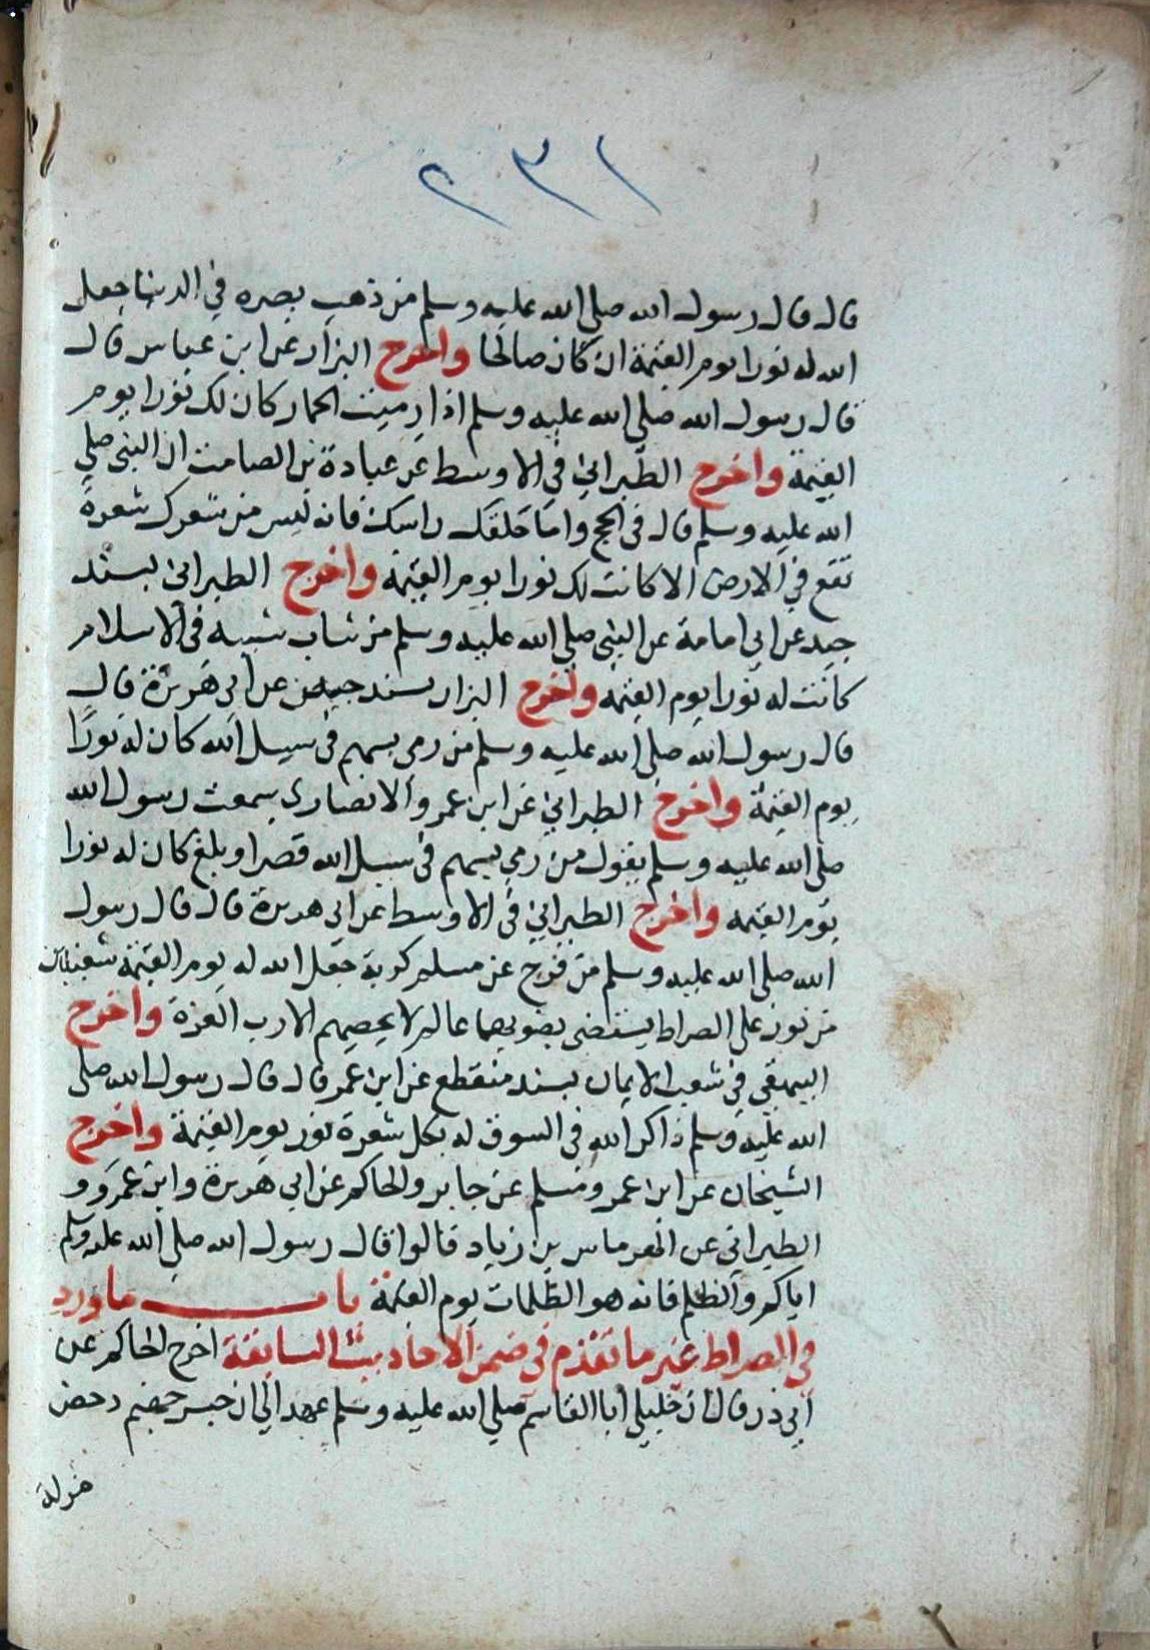 ١٣٢
قال قال رسول الله صلى الله عليه وسلم من ذهب بصره في الدنيا جعل
الله له نورا يوم القيمة ان كان صالحا واخرج البزار عن ابن عباس قال
قال رسول الله صلى الله عليه وسلم اذا رميت الجمار كان لك نورا يوم
القيمة واخرج الطبراني في الاوسط عن عبادة بن الصامت ان النبي صلى
الله عليه وسلم قال في الحج واما حلقك راسك فانه ليس من شعرك شعرة
تقع في الارض الا كانت لك نورا يوم القيمة واخرج الطبراني بسند
جيد عن ابي امامة عن النبي صلى الله عليه وسلم من شاب شيبه في الاسلام
كانت له نورا يوم القيمه واخرج البزار بسند جيد عن ابي هريرة قال
قال رسول الله صلى الله عليه وسلم من رمى بسهم في سبيل الله كان له نورًا
يوم القيمة واخرج الطبراني عن ابن عمرو الانصاري سمعت رسول الله
صلى الله عليه وسلم يقول من رمي بسهم في سبيل الله قصر او بلغ كان له نورا
يوم القيمه واخرج الطبراني في الاوسط عن ابي هريرة قال قال رسول
الله صلى الله عليه وسلم من فرج عن مسلم كربة جعل الله له يوم القيمة شعبتان
من نور على الصراط يستضى بضويهما عالم لا يحصيهم الا رب العزة واخرج
البيهقي في شعب الايمان بسند منقطع عن ابن عمر قال قال رسول الله صلى
الله عليه وسلم ذاكر الله في السوق له بكل شعرة نور يوم القيمة واخرج
الشيخان عن ابن عمر ومسلم عن جابر والحاكم عن ابي هريرة وابن عمرو و
الطبراني عن الهرماس بن زياد قالوا قال رسول الله صلى الله عليه وسلم
اياكم والظلم فانه هو الظلمات يوم القيمة باب ما ورد
في الصراط غير ما تقدم في ضمن الاحاديث السابقة اخرج الحاكم عن
ابي ذر قال ان خليلي ابا القاسم صلى الله عليه وسلم عهد الي ان جسر جهنم دحض
مزلة